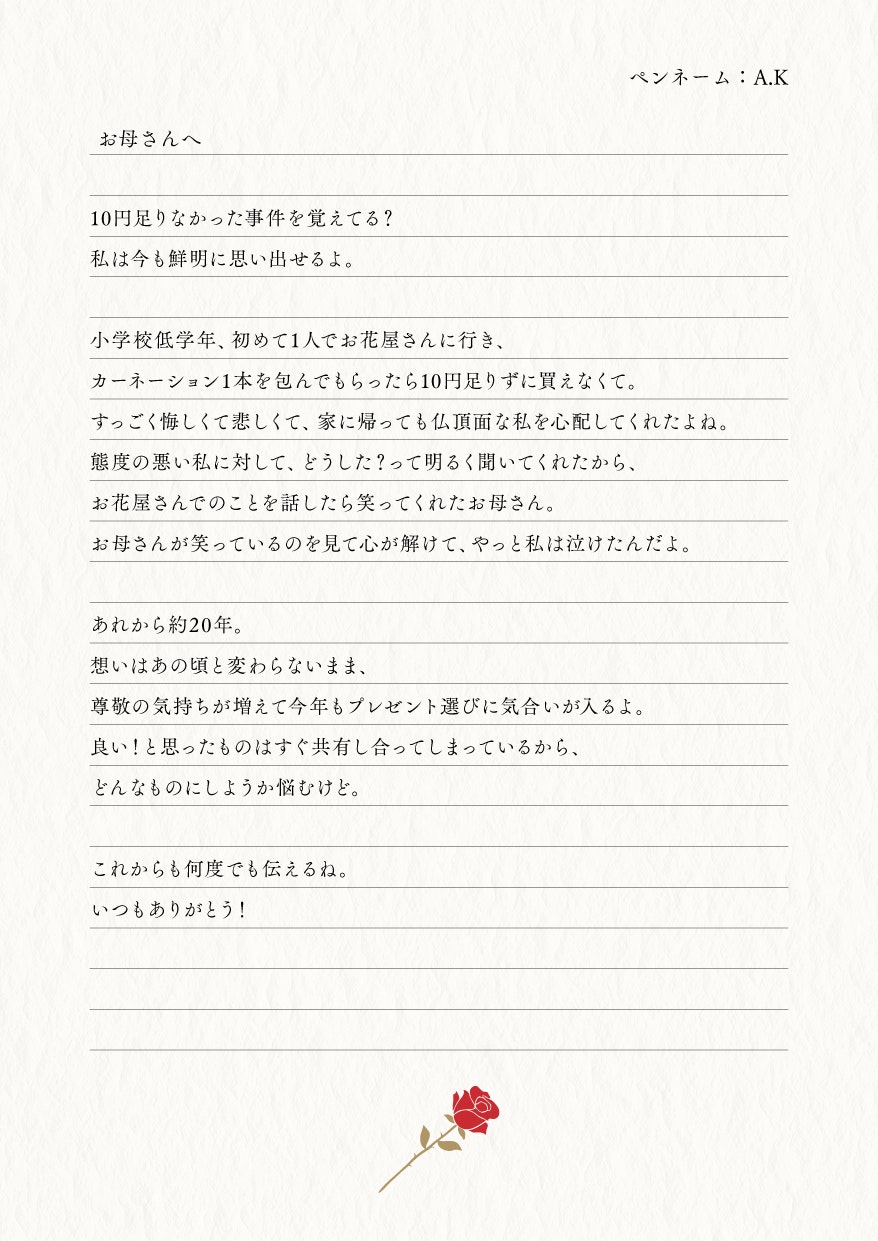 ペンネーム：A.K
お母さんへ
10円足りなかった事件を覚えてる？
私は今も鮮明に思い出せるよ。
小学校低学年、初めて1人でお花屋さんに行き、
カーネーション1本を包んでもらったら10円足りずに買えなくて。
すっごく悔しくて悲しくて、家に帰っても仏頂面な私を心配してくれたよね。
態度の悪い私に対して、どうした？って明るく聞いてくれたから、
お花屋さんでのことを話したら笑ってくれたお母さん。
お母さんが笑っているのを見て心が解けて、やっと私は泣けたんだよ。
あれから約20年。
想いはあの頃と変わらないまま、
尊敬の気持ちが増えて今年もプレゼント選びに気合いが入るよ。
良い！と思ったものはすぐ共有し合ってしまっているから、
どんなものにしようか悩むけど。
これからも何度でも伝えるね。
いつもありがとう！